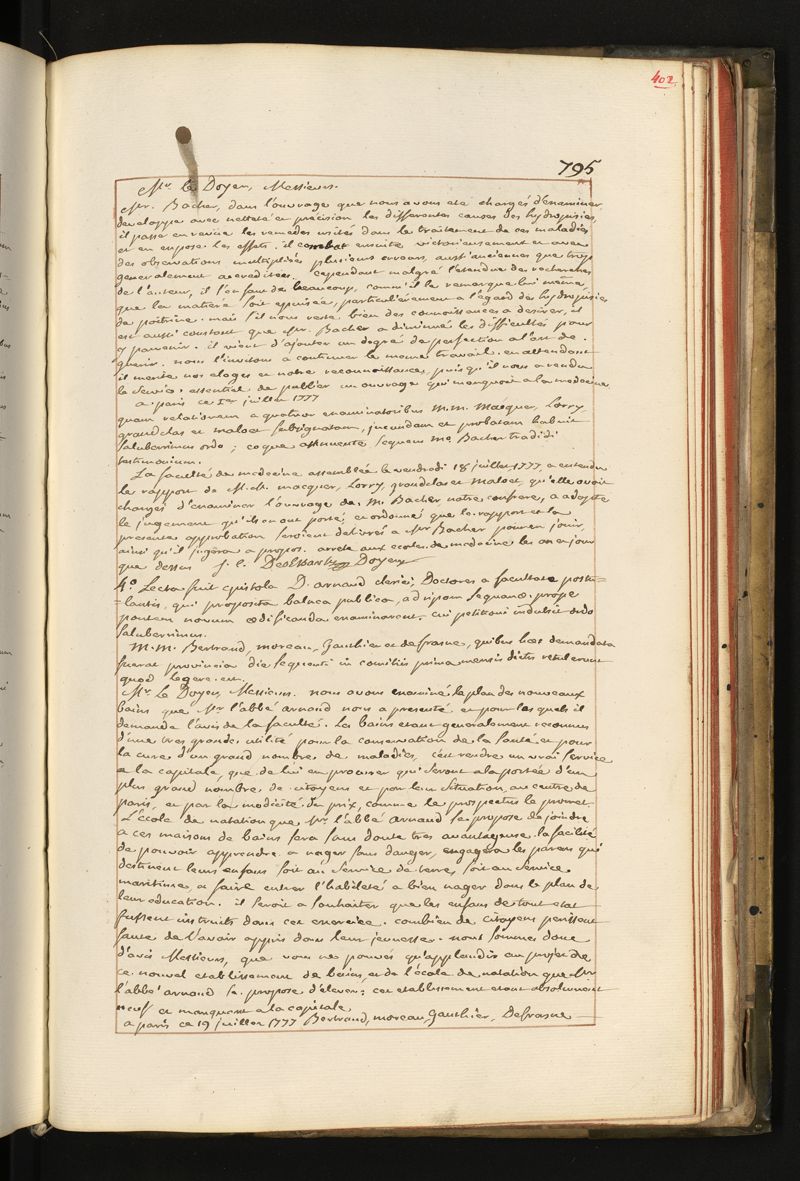 402
795
Mr. le Doyen, Messieurs.
Mr. Bacher, dans l'ouvrage que nous avons eté chargés d'examiner
developpe avec netteté et précision les differentes causes des hydropisies,
il passe en revüe les remedes usités dans le traitement de ces maladies
et en expose les effets. il combat ensuite victorieusement et avec
des observations multipliées plusieurs erreurs, aussi anciennes que trop
generalement accreditées. Cependant malgré l'etendue des recherches
de l'auteur, il s'en faut de beaucoup, comme il le remarque lui même,
que la matiere soit epuisée, particulièrement a l'égard des hydropisies
de poitrine. mais s'il nous reste bien des connoissances a desirer, il
est aussi constant que Mr. Bacher a diminué les difficultés pour
y parvenir. il vient d'ajouter un degré de perfection a l'art de
guerir. nous l'invitons a continuer le meme travail. en attendant
il merite nos eloges et notre reconnoissance, puis qu'il nous a rendu
le service essentiel de publier un ouvrage qui manquoit a la medecine
a paris ce 1er juillet 1777
quam relationem a quatuor examinatoribus M.M. Macquer, Lorry
grandclas et maloet subsignatam, jucundam et probatam habuit
saluberrimus ordo; eoque annuente sequens Mo Bacher tradidi
testimonium.
La faculté de medecine assemblée le vendredi 18 juillet 1777, a entendu
le rapport de M.M. macquer, Lorry, grandclas et Maloet, qu'elle avoit
chargés d'examiner l'ouvrage de M. Bacher notre confrere, a adopté
le jugement qu'ils en ont porté, et ordonné que le rapport et la
presente approbation seroient delivrés a Mr Bacher pour en jouir,
ainsi qu'il jugera a propos. arreté aux ecoles de medecine les an et jour
que dessus J. C. Desessartz Doyen
4.° Lecta fuit epistola D. arnaud clerici, Doctores a facultate postu-
-lantis, qui proposita balnea publica, ad ripam sequanæ prope
pontem novum ædificanda examinarent. cui petitioni indulsit ordo
saluberrimus.
M.M. Bertrand, moreau, Gauthier et de frasne, quibus hæc demandata
fuerat provincia die sequenti in comitiis prima mensis dictis retulerunt
quod legere est.
Mr. Le Doyen, Messieurs. nous avons examiné le plan des nouveaux
bains que Mr l'abbé arnaud nous a presenté, et pour les quels il
demande l'avis de la faculté. Les bains etant generalement reconnus
d'une tres grande utilité pour la conservation de la santé et pour
la cure d'un grand nombre de maladies, c'est rendre un vrai service
a la capitale, que de lui en procurer qui seront a la portée d'un
plus grand nombre de citoyens et par leur situation au centre de
paris, et par la modicité du prix, comme le prospectus le promet.
L'école de natation que Mr. l'abbé arnaud se propose de joindre
a ces maisons de bains sera sans doute tres avantageuse. la facilité
de pouvoir apprendre a nager sans danger, engagera les parens qui
destinent leurs enfans soit au service de terre, soit au service
maritime, a faire entrer l'habileté a bien nager dans le plan de
leur education. il seroit a souhaiter que les enfans de tout etat
fussent instruits dans cet exercice. combien de citoyens perissent
faute de l'avoir appris dans leur jeunesse. nous sommes donc
d'avis Messieurs, que vous ne pouvés qu'applaudir au projet de
ce nouvel etablissement de bains, et de l'école de natation que Mr
l'abbé arnaud se propose d'elever; cet etablissement etant absolument
neuf et manquant a la capitale
a paris ce 19 juillet 1777 Bertrand, moreau, Gauthier, Defrasne